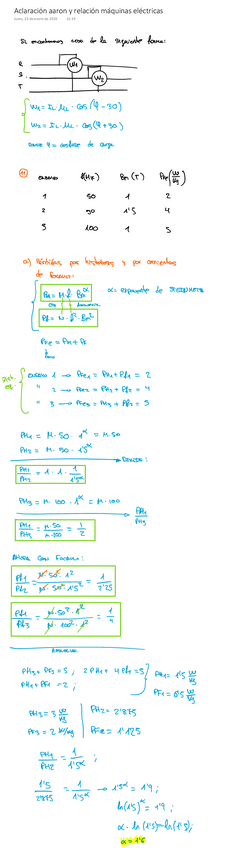 Aclaración aaron y relación máquinas eléctricas
Si encontramos de la siguiente forma:
R
S
T
W1
W2
W1 = IL·UL · cos(φ-30)
W2 = IL·UL · cos(φ+30)
donde φ = desfase de carga
11 ensayo f(Hz) Bm (T) PFe (W/kg)
1 50 1 2
2 50 1'5 4
3 100 1 5
a) Pérdidas por histéresis y por corrientes
de Foucault:
PH = M·f·Bm^α α = exponente de STEINMETZ
Pf = N·f²·Bm²
PFe = PH + Pf
ensayo 1 → PFe1 = PH1 + Pf1 = 2
" 2 → PFe2 = PH2 + Pf2 = 4
" 3 → PFe3 = PH3 + Pf3 = 5
PH1 = M·50·1^α = M·50
PH2 = M·50·1'5^α
PH1/PH2 = 1·1·1/1'5^α
PH3 = M·100·1^α = M·100
PH1/PH3
PH1/PH3 = M·50/M·100 = 1/2
Ahora con Foucault:
Pf1/Pf2 = N·50²·1²/N·50²·1'5² = 1/2'25
Pf1/Pf3 = N·50²·1²/N·100²·1² = 1/4
PH3 + PF3 = 5 ; 2PH1 + 4Pf1 = 5
PH1 + PF1 = 2 ;
PH1 = 1'5 W/kg
PF1 = 0'5 W/kg
PH3 = 3 W/kg PH2 = 2'875
PF3 = 2 W/kg PF2 = 1'125
PH1/PH2 = 1/1'5^α ;
1'5/2'875 = 1/1'5^α → 1'5^α = 1'9 ;
ln(1'5)^α = 1'9 ;
α = 1'6